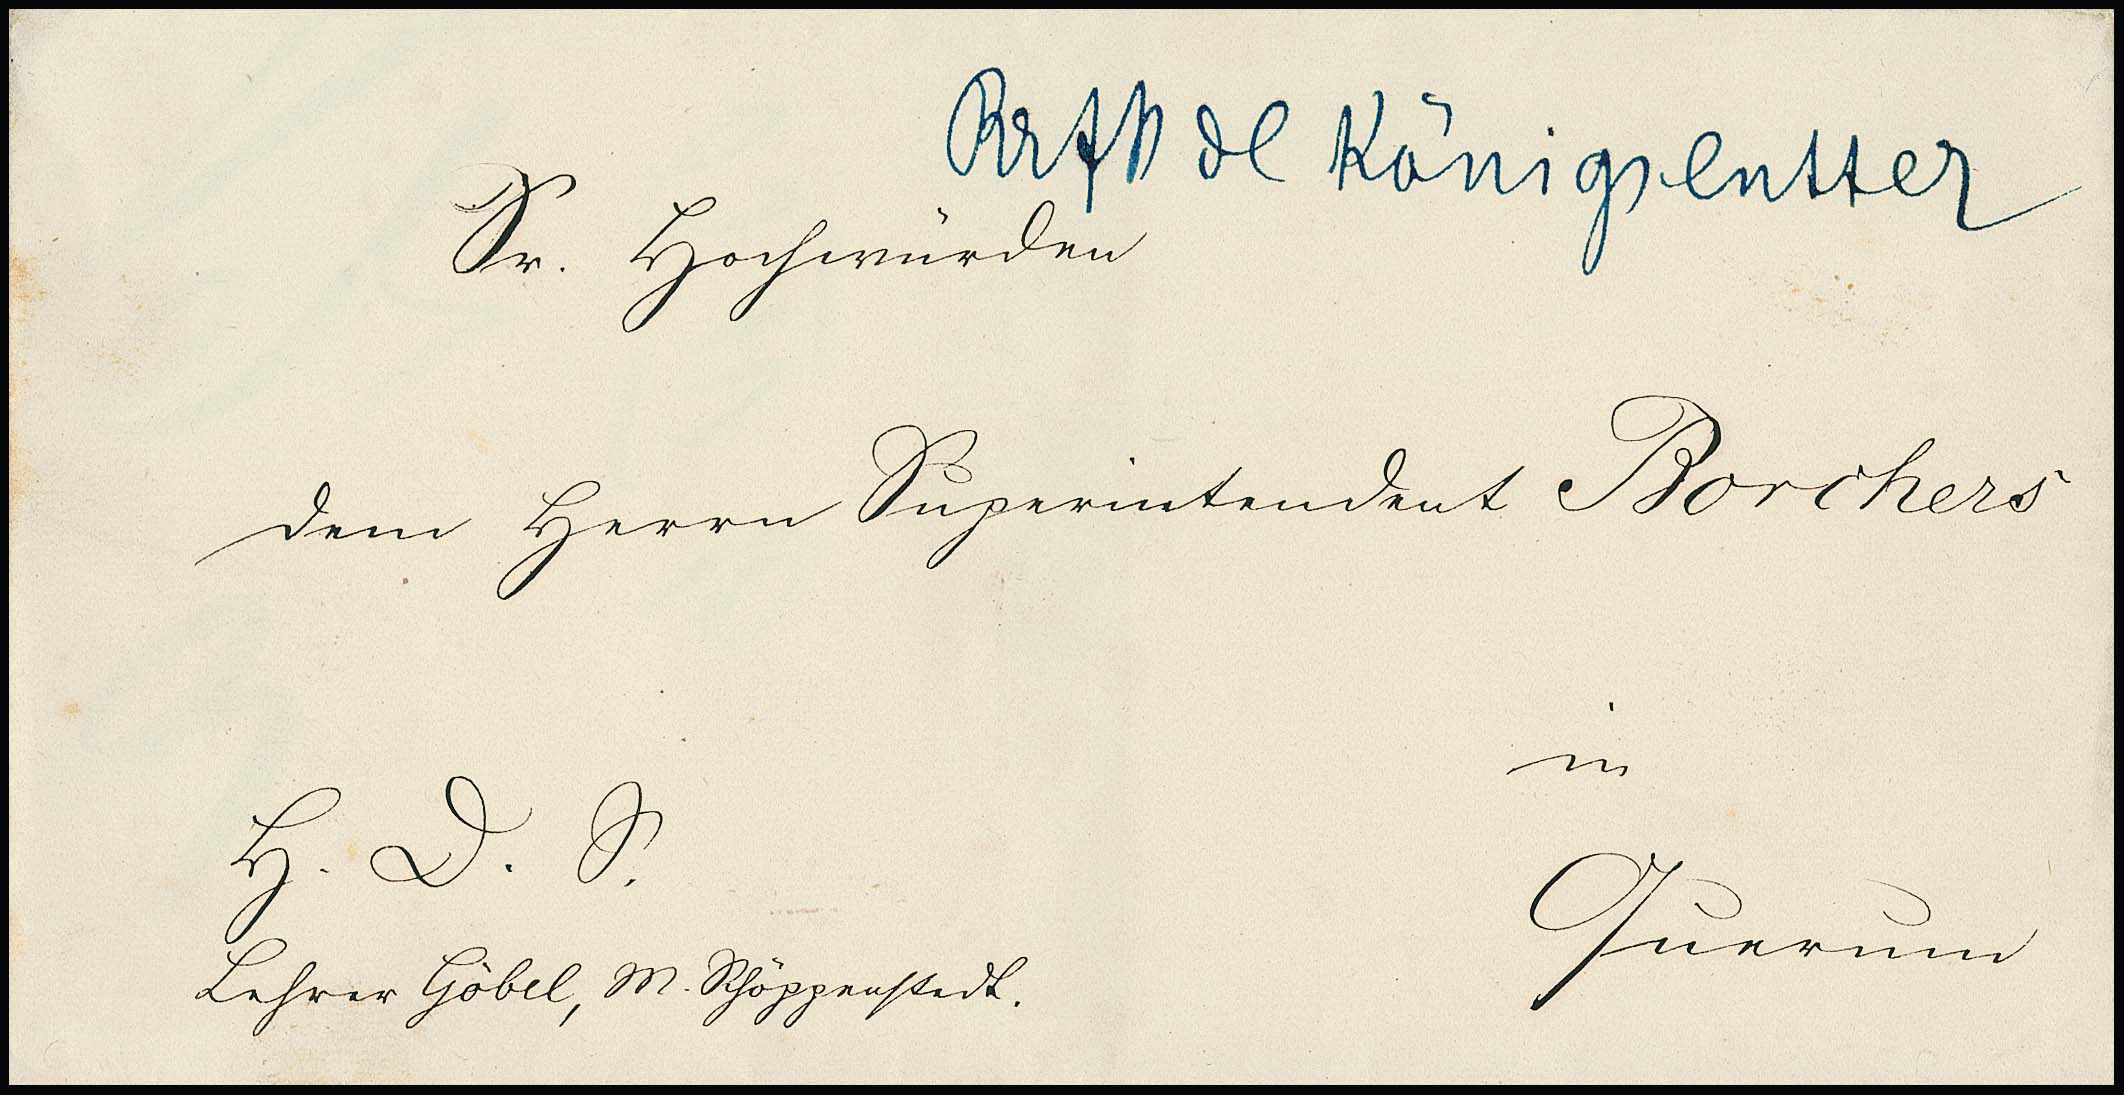 Königslutter
Sr. Hochwürden
dem Herrn Superintendent Borchers
in
Querum
H. D. S.
Lehrer Göbel, M. Schöppenstedt.